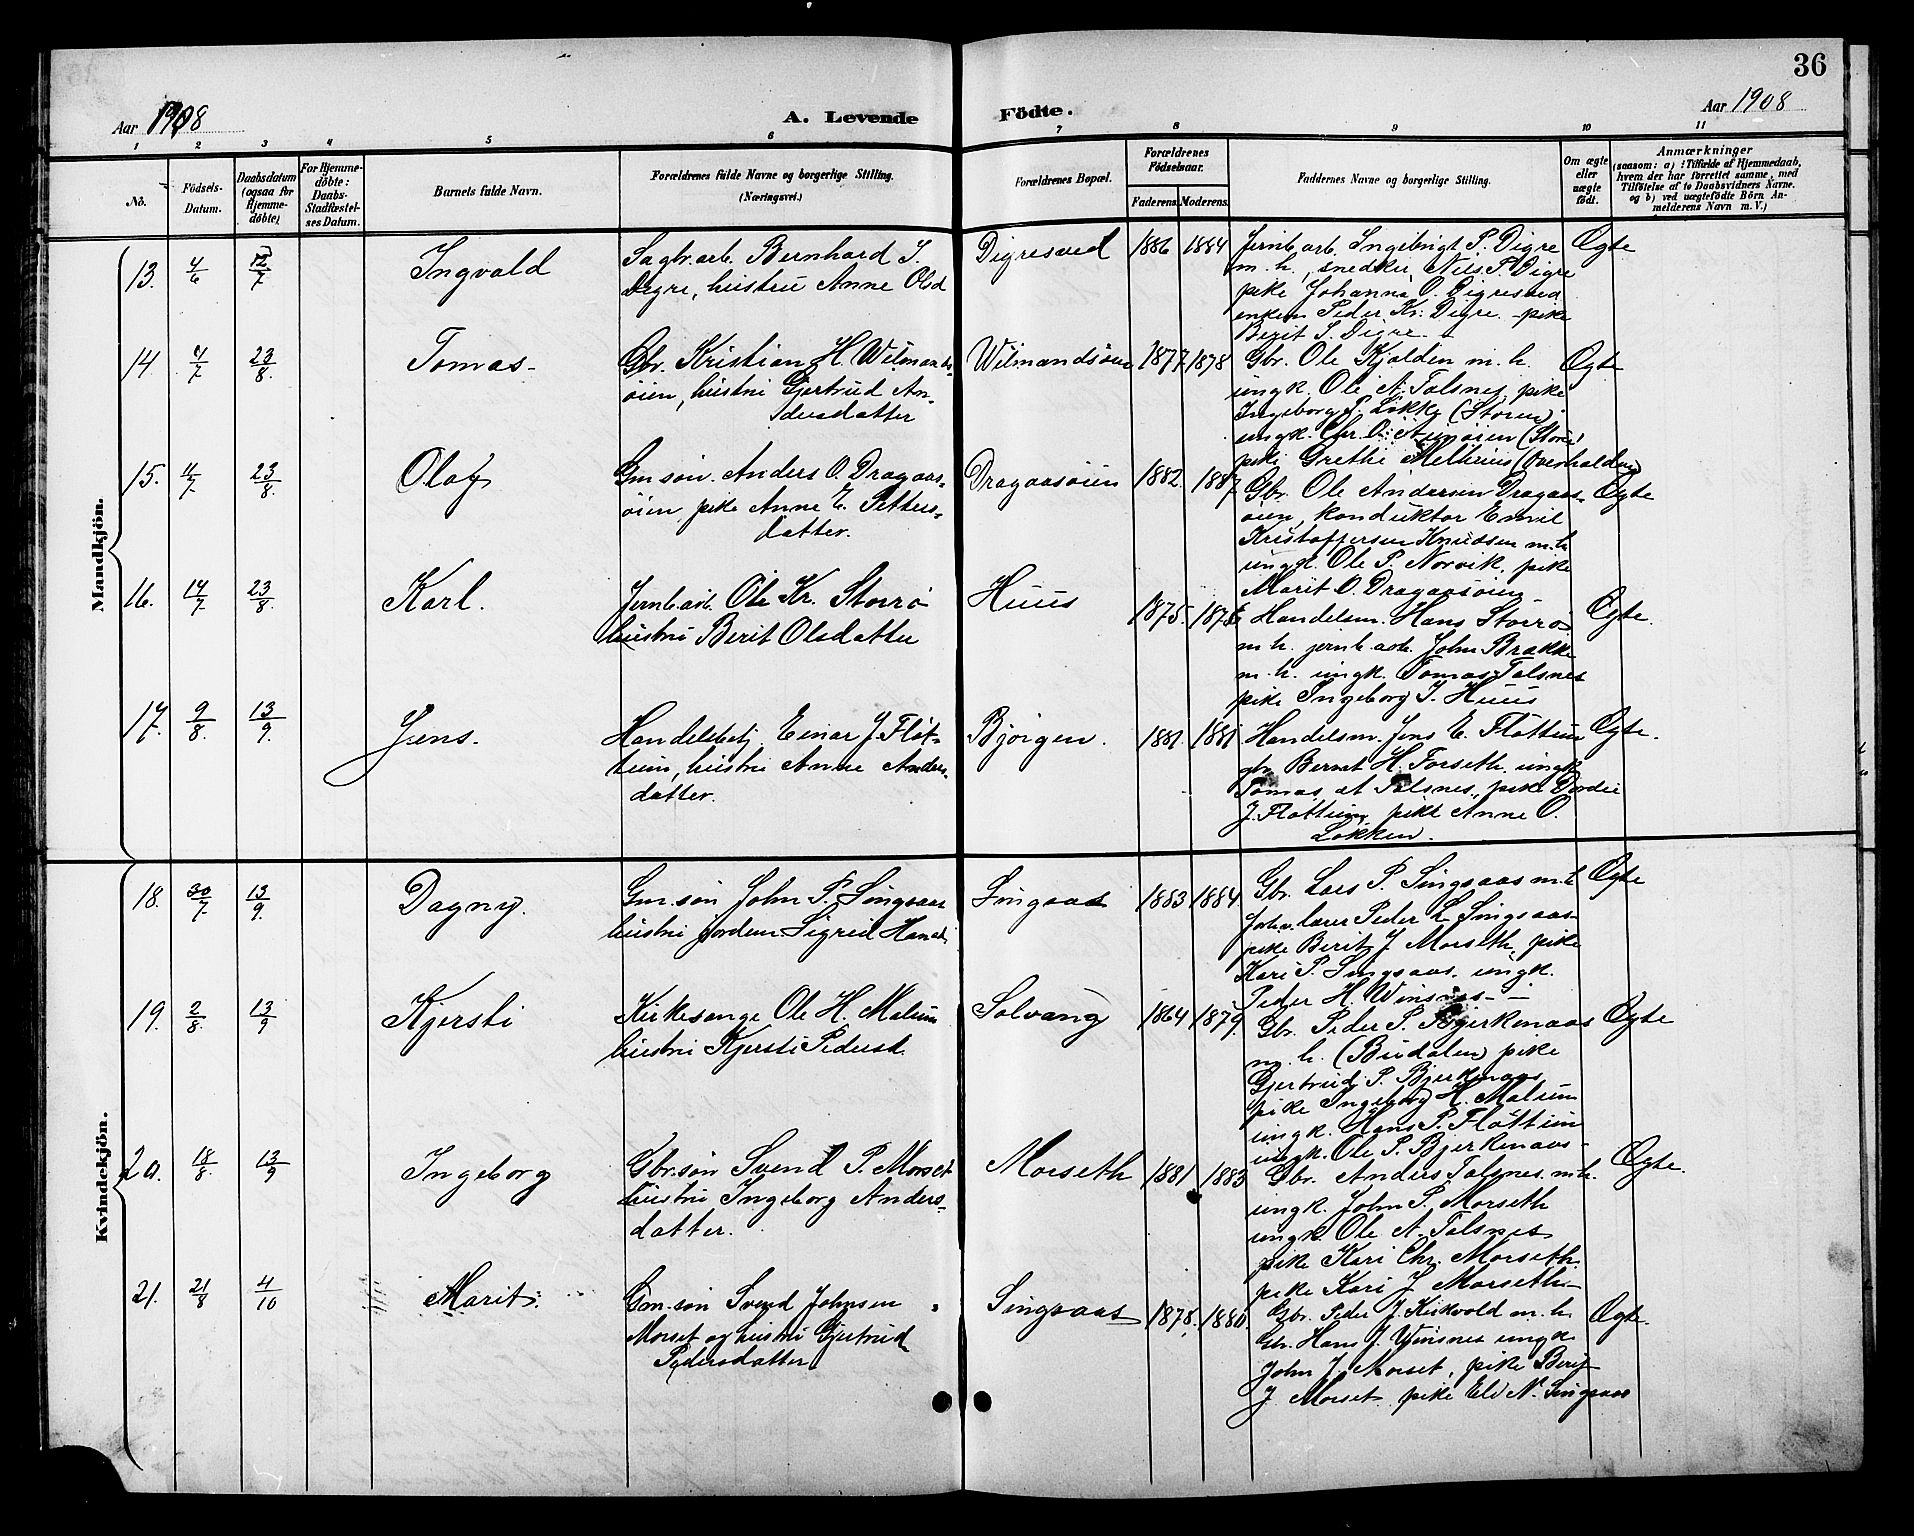 36
Aar 1908
A. Levende Födte.
Aar 1908
1 2 3 4 5 6 7 8 9 10 11
No.
Födsels-Datum.
Daabsdatum (ogsaa for Hjemme-döbte)
For Hjemme-döbte: Daabs-Stadfæstel-ses Datum.
Barnets fulde Navn.
Forældrenes fulde Navne og borgerlige Stilling. (Næringsvei.)
Forældrenes Bopæl.
Forældrenes Födselsaar.
Faderens. Moderens.
Faddernes Navne og borgerlige Stilling.
Om ægte eller uægte födt.
Anmærkninger
(saasom: a) i Tilfælde af Hjemmedaab,
hvem der har forrettet samme, med
Tilföielse af to Daabsvidners Navne.
og b) ved uægtefödte Börn An-
melderens Navn m. V.)
Mandkjön.
13. 4/6 12/7 Ingvald
Sagbr.arb. Bernhard I.
Digre, hustru Anne Olsd
Digresved 1886 1884
Jernb.arb. Ingebrigt P. Digre
m. h., snedker Nils P. Digre
pike Johanna O. Digresved
enkem Peder Kr. Digre - pike
Berit S. Digre
Ægte
14 4/7 23/8. Tomas-
Gbr. Kristian H. Wilmands-
öien, hustru Gjertrud An-
dersdatter
Wilmandsöien 1877. 1878
Gbr. Ole Kjalden m. h.
ungk. Ole A. Talsnes, pike
Ingeborg P. Løkke (Støren)
ungk. Chr. O. Aunöien (Støren)
pike Grethe Melhuus (Overhalden)
Ægte
15. 4/7 23/8. Olaf
Gm.sön. Anders O. Dragaas-
öien, pike Anne E. Petters-
datter.
Dragaasöien 1882. 1887.
Gbr. Ole Andersen Dragaas-
öien, konduktör Emil
Kristoffersen Knudsen m.h
ungk. Ole P. Norvik, pike
Marit O. Dragaasöien
Ægte
16. 14/7 23/8. Karl.
Jernb.arb. Ole Kr. Storrö
hustru Berit Olsdatter
Huus 1875. 1875
Handelsm. Hans Storrö
m. h. jernb.arb. John Brække
m. h. ungk. Tomas Talsnes
pike Ingeborg J. Huus
Ægte.
17. 9/8. 13/9. Jens.
Handelsbetj Einar J. Flöt-
tum, hustru Anne Anders-
datter.
Bjørgen. 1881. 1881
Handelsm. Jens E. Fløttum
gbr. Bernt H. Forseth. ungk
Tomas A. Talsnes, pike Dordi
J. Fløttum, pike Anne O.
Løkken.
Ægte.
Kvindekjön.
18. 30/7. 13/9. Dagny.
Gm.sön John P. Singsaas
hustru jordem Sigrid Hansd.
Singsaas 1883 1884.
Gbr. Lars P. Singsaas m.h
Peder L. Singsaas-
pike Berit J. Morseth, pike
Kari P. Singsaas. ungk.
Peder H. Winsnes-
Ægte
19. 2/8. 13/9 Kjersti
Kirkesange Ole H. Malum
hustru Kjersti Pedersd.
Solvang 1864 1879.
Gbr. Peder P. Bjerkenaas
m. h. (Budalen) pike
Gjertrud P. Bjerkenaas
pike Ingeborg H. Malum
ungk. Hans P. Fløttum
ungk. Ole P. Bjerkenaas-
Ægte
20. 18/8. 13/9 Ingeborg
Gbr.sön Svend P. Morset
hustru Ingeborg Anders-
datter.
Morseth 1881 1883
Gbr. Anders Talsnes m.h.
ungk. John P. Morseth
ungk. Ole A. Talsnes
pike Kari Chr. Morseth.
pike Kari J Morseth-
Ægte.
21. 21/8 4/10 Marit.
Gm.sön Svend Johnsen
Morset og hustru Gjertrud
Pedersdatter
Singsaas 1878. 1880
Gbr. Peder J. Kirkvold m. h.
Gbr. Hans J. Winsnes ungk
John J. Morset, pike Berit
J. Morset pike Eli N. Singsaas
Ægte.